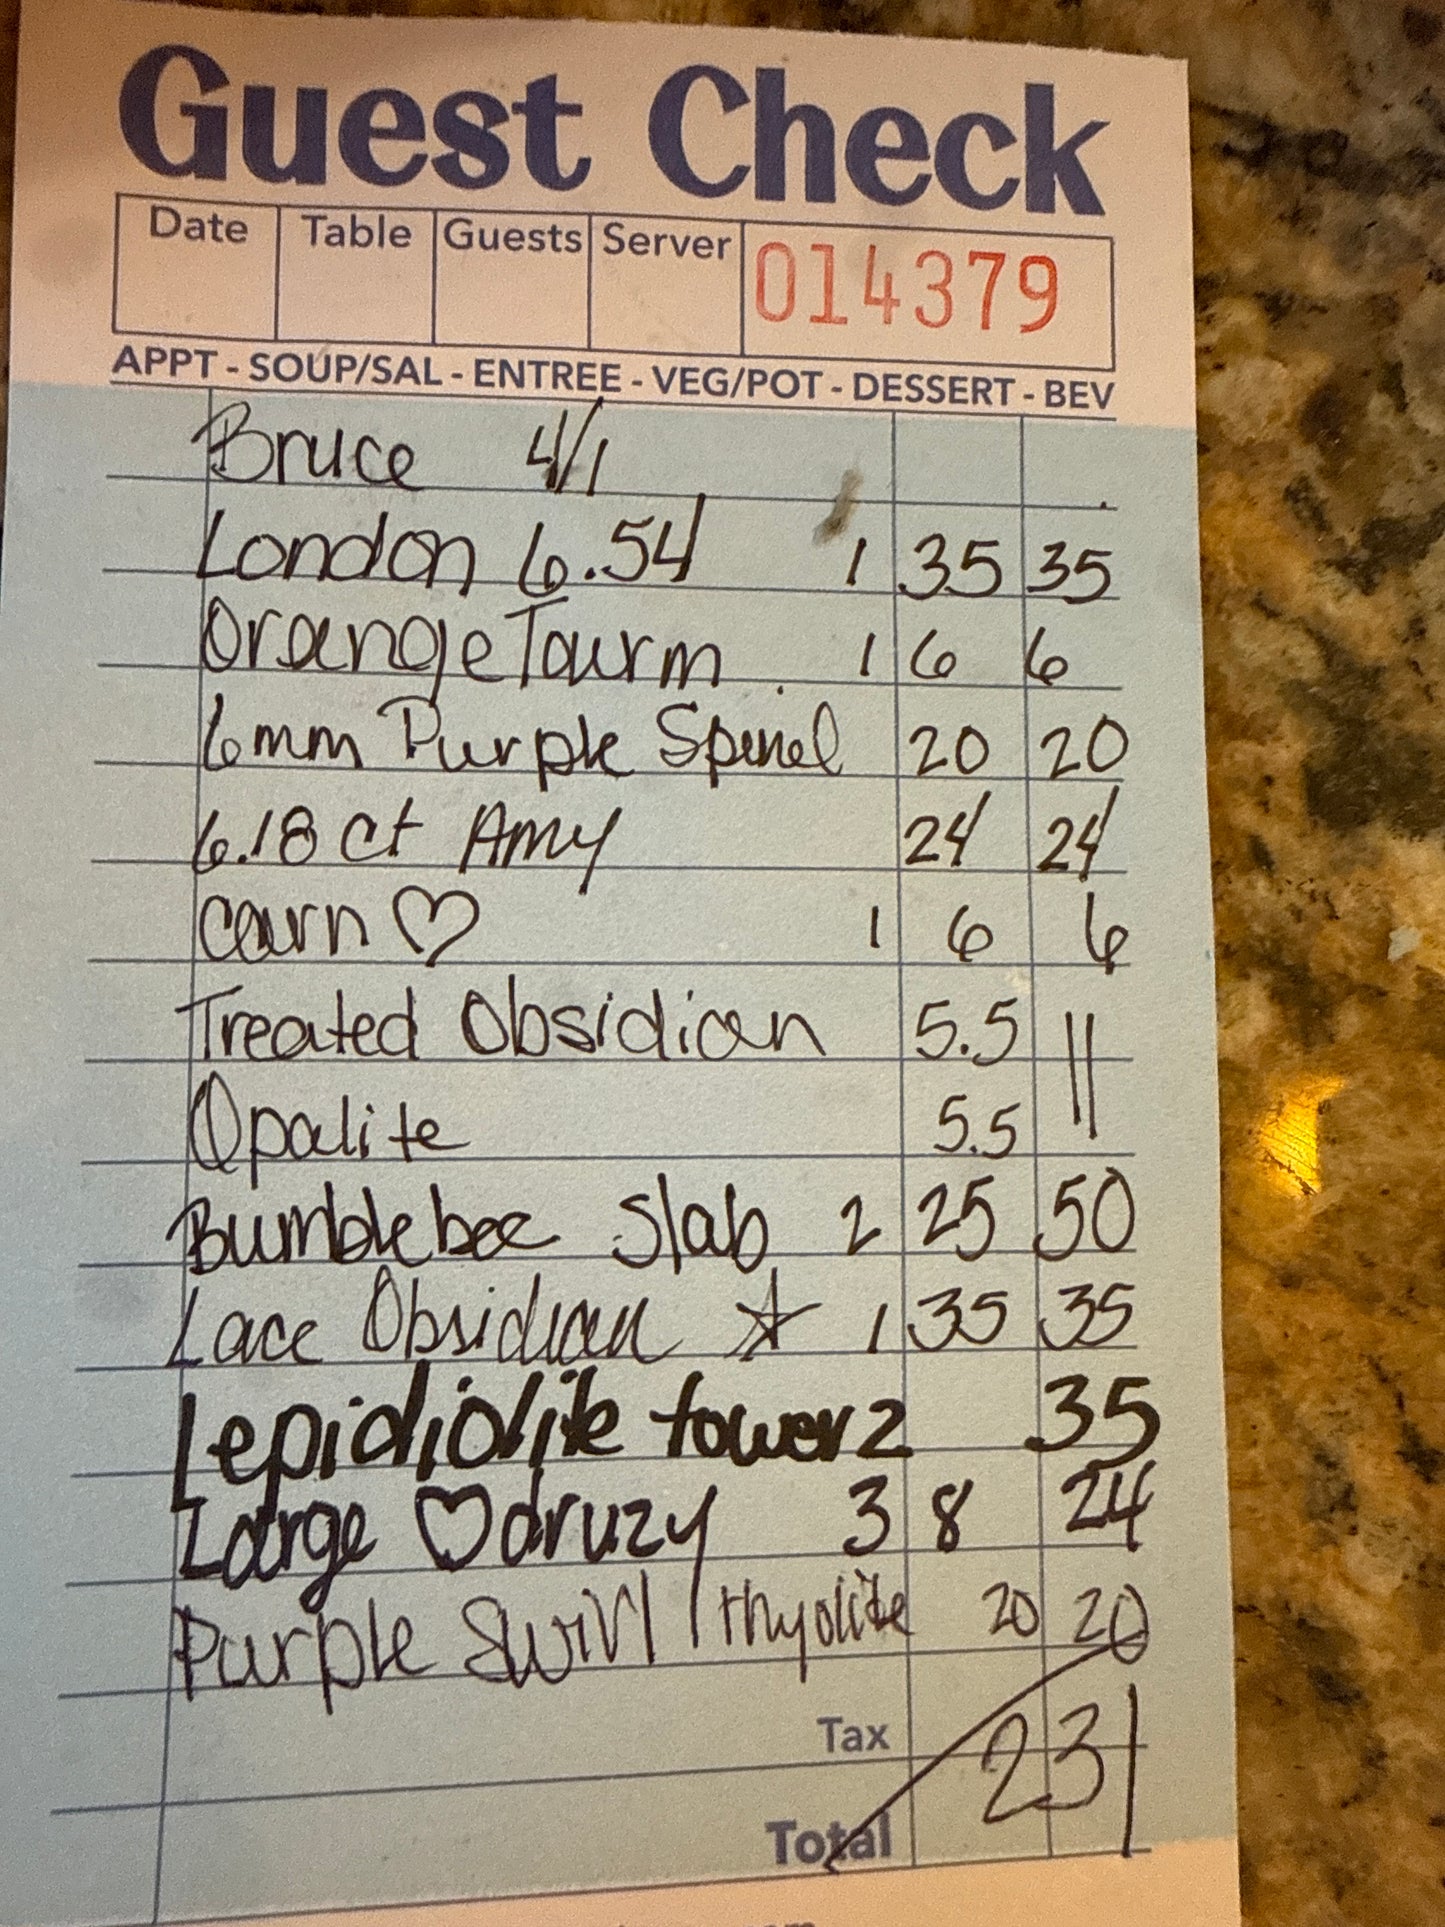 Guest Check
Date Table Guests Server 014379
APPT - SOUP/SAL - ENTREE - VEG/POT - DESSERT - BEV
Bruce 4/1
London 6.54 1 35 35
Orange Tourm 1 6 6
6mm Purple Spinel 20 20
6.18 ct Amy 24 24
Carn ♡ 1 6 6
Treated Obsidian 5.5 11
Opalite 5.5
Bumblebee Slab 2 25 50
Lace Obsidian ☆ 1 35 35
Lepidiolite tower 2 35
Large ♡ druzy 3 8 24
Purple Swirl rhyolite 20 20
Tax
Total 231